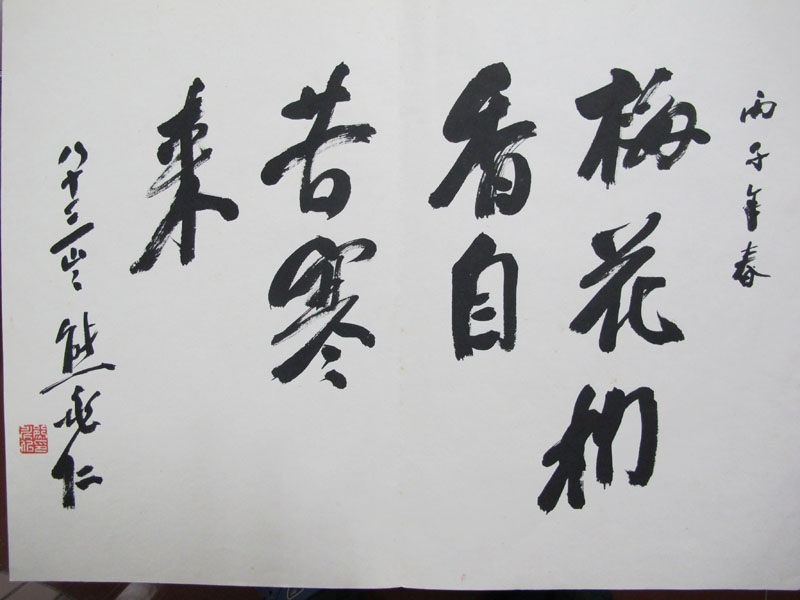 丙子年春
梅花
香自
苦寒
来
八十三岁 熊兆仁